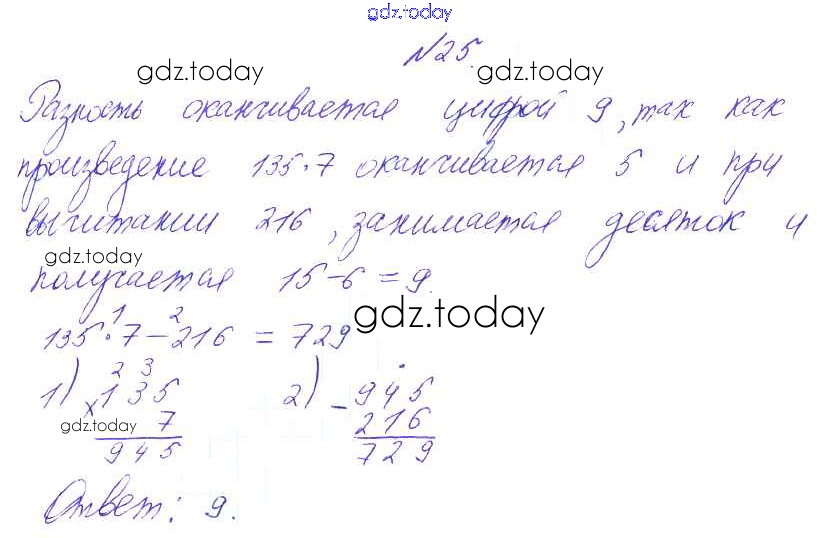 gdz.today
№25.
gdz.today
Разность оканчивается цифрой 9, так как
произведение 135·7 оканчивается 5 и при
вычитании 216, занимается десяток и
gdz.today
получается 15-6=9.
1 2
135·7-216=729
gdz.today
1) 2 3
×135
7
945
gdz.today
2) -945
216
729
Ответ: 9.